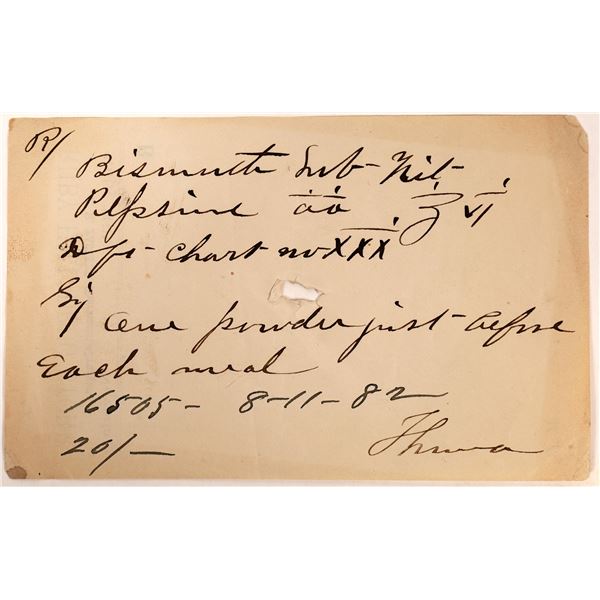 R/
Bismuth Sub-Nit-
Pepsine āā ʒ vi
ft- chart no XXX
Sig One powder just before
Each meal
16505- 8-11-82
20/-